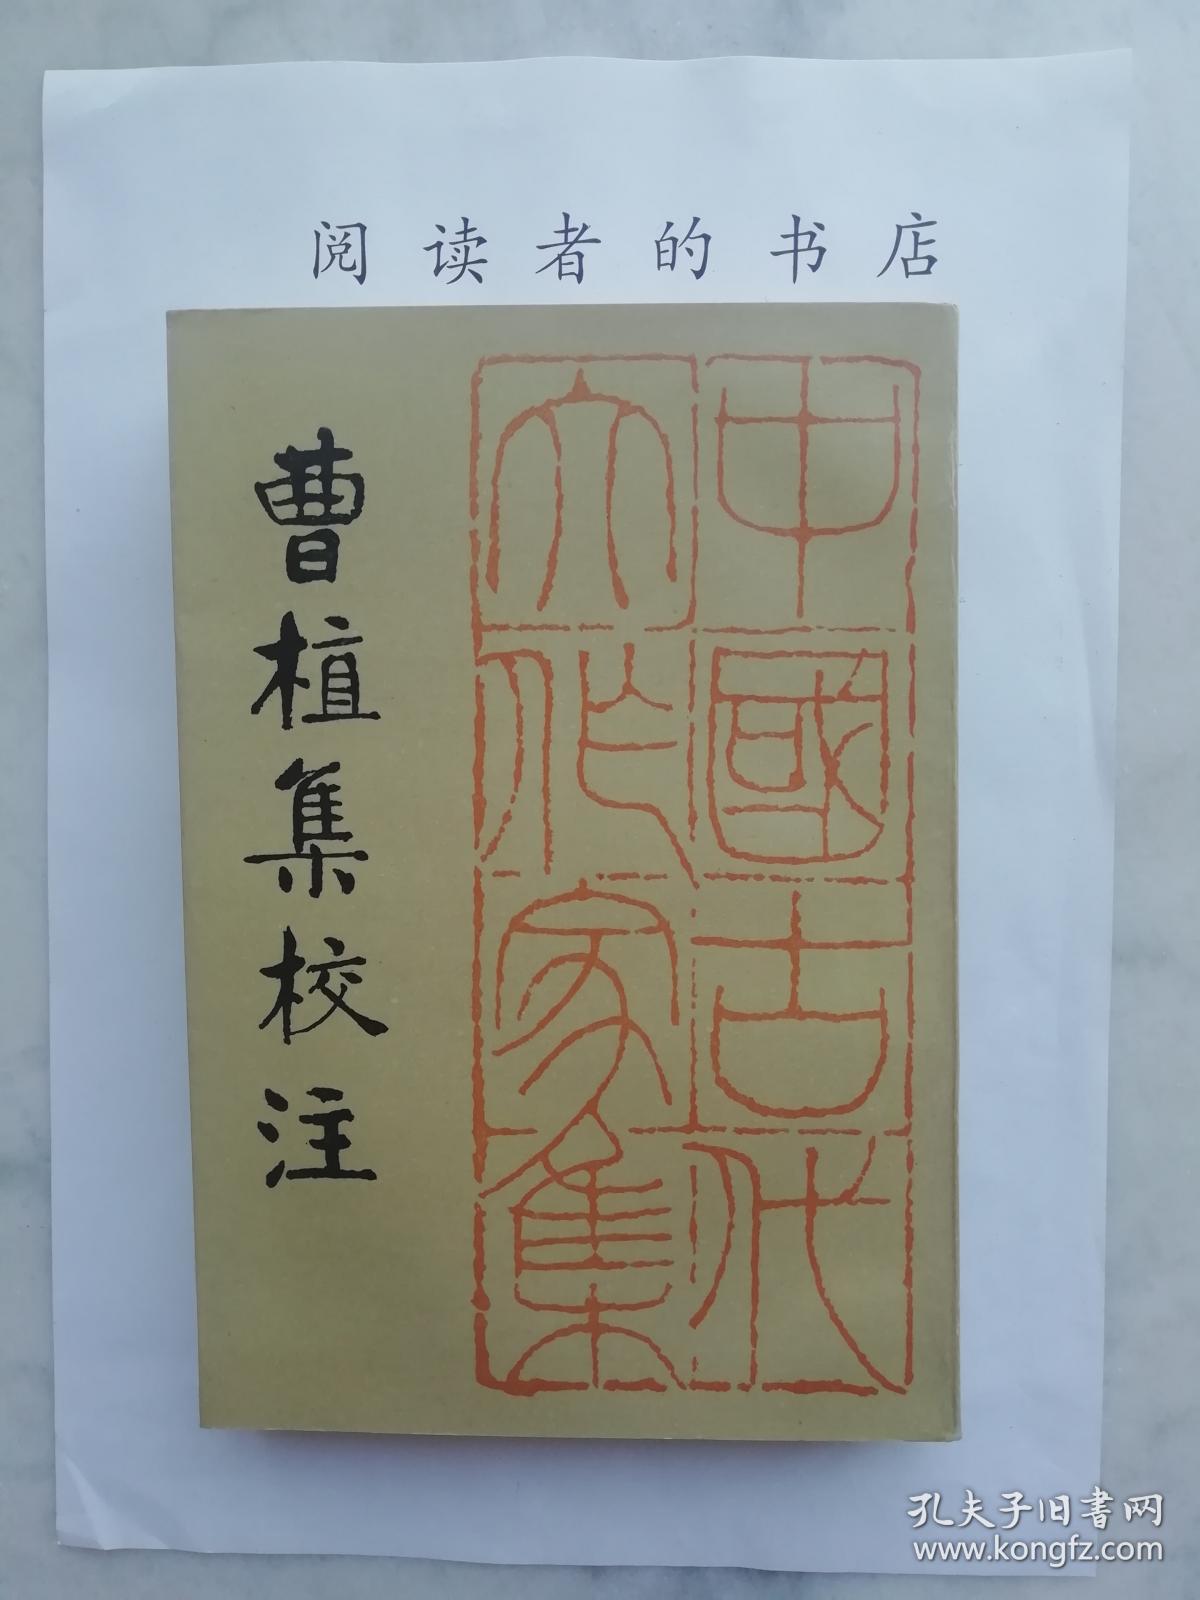 阅读者的书店
曹植集校注
中國古代
六作家集
孔夫子旧书网
www.kongfz.com